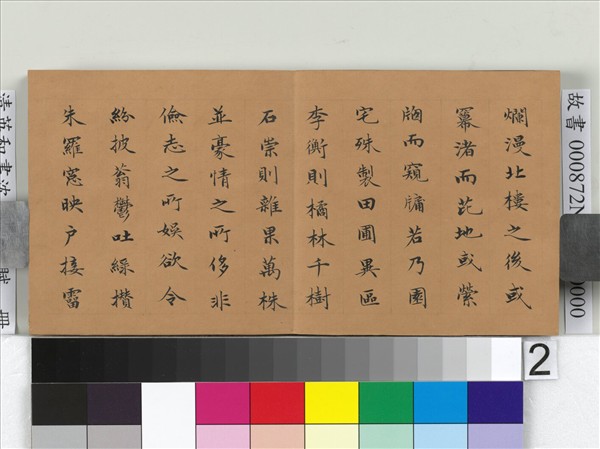 爛漫北樓之後或
冪渚而芘地或縈
牕而窺牖若乃園
宅殊製田圃異區
李衡則橘林千樹
石崇則雜果萬株
並豪情之所侈非
儉志之所娛欲令
紛披蓊鬱吐綠攢
朱羅窓映戶接霤
故書 000872N
0000
清英和書沈
賦 冊
2